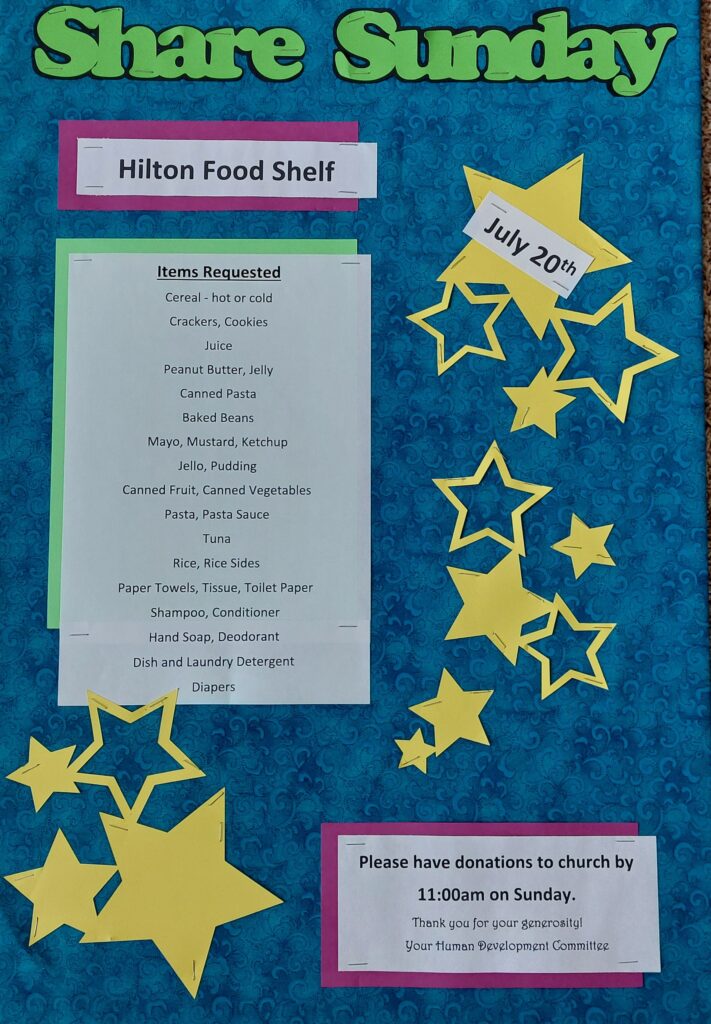 Share Sunday
Hilton Food Shelf
July 20th
Items Requested
Cereal - hot or cold
Crackers, Cookies
Juice
Peanut Butter, Jelly
Canned Pasta
Baked Beans
Mayo, Mustard, Ketchup
Jello, Pudding
Canned Fruit, Canned Vegetables
Pasta, Pasta Sauce
Tuna
Rice, Rice Sides
Paper Towels, Tissue, Toilet Paper
Shampoo, Conditioner
Hand Soap, Deodorant
Dish and Laundry Detergent
Diapers
Please have donations to church by
11:00am on Sunday.
Thank you for your generosity!
Your Human Development Committee